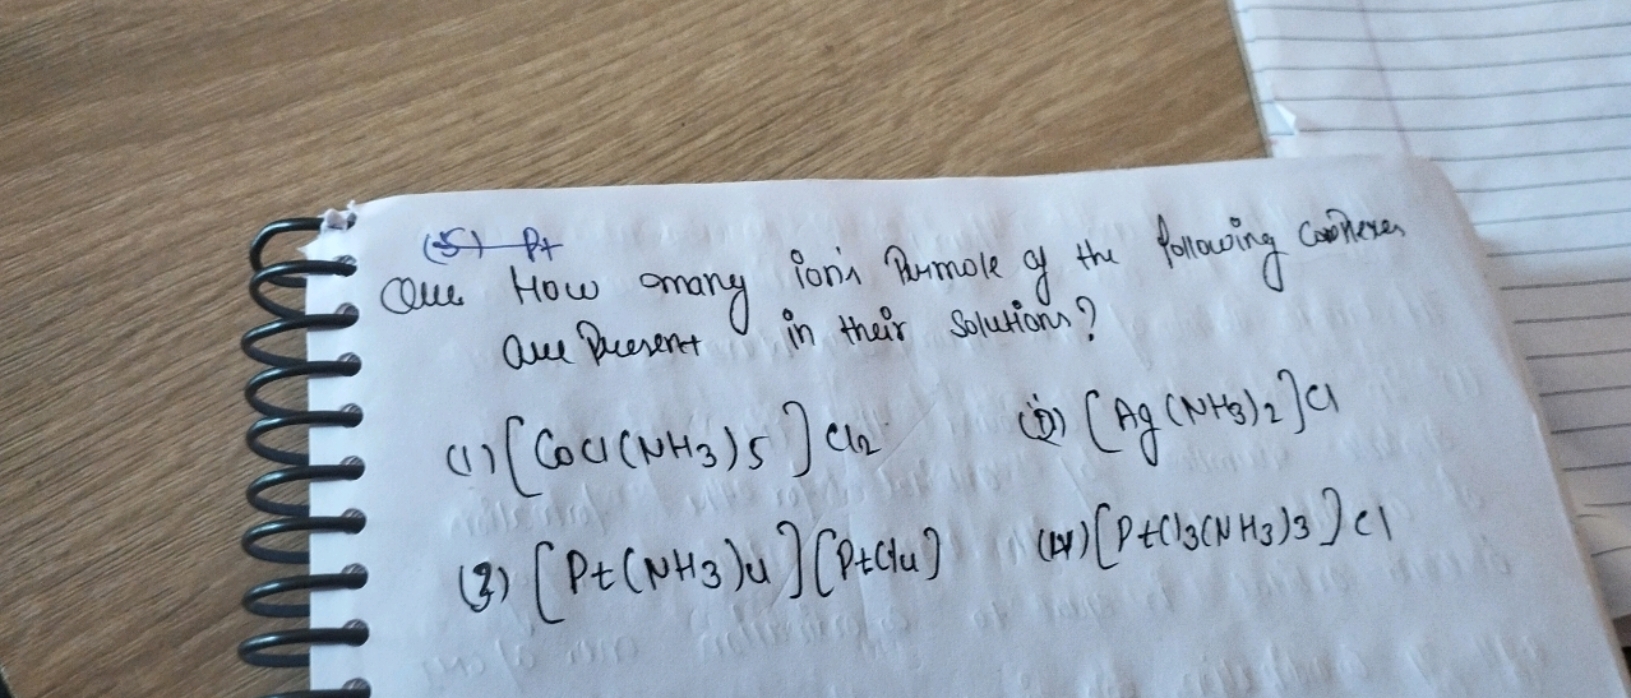 (5) Pt
Que How many ion's Permole of the following Complexes
are Present in their Solutions?
(1) [CoCl(NH3)5]Cl2 (ii) [Ag(NH3)2]Cl
(3) [Pt(NH3)4][PtCl4] (iv) [PtCl3(NH3)3]Cl